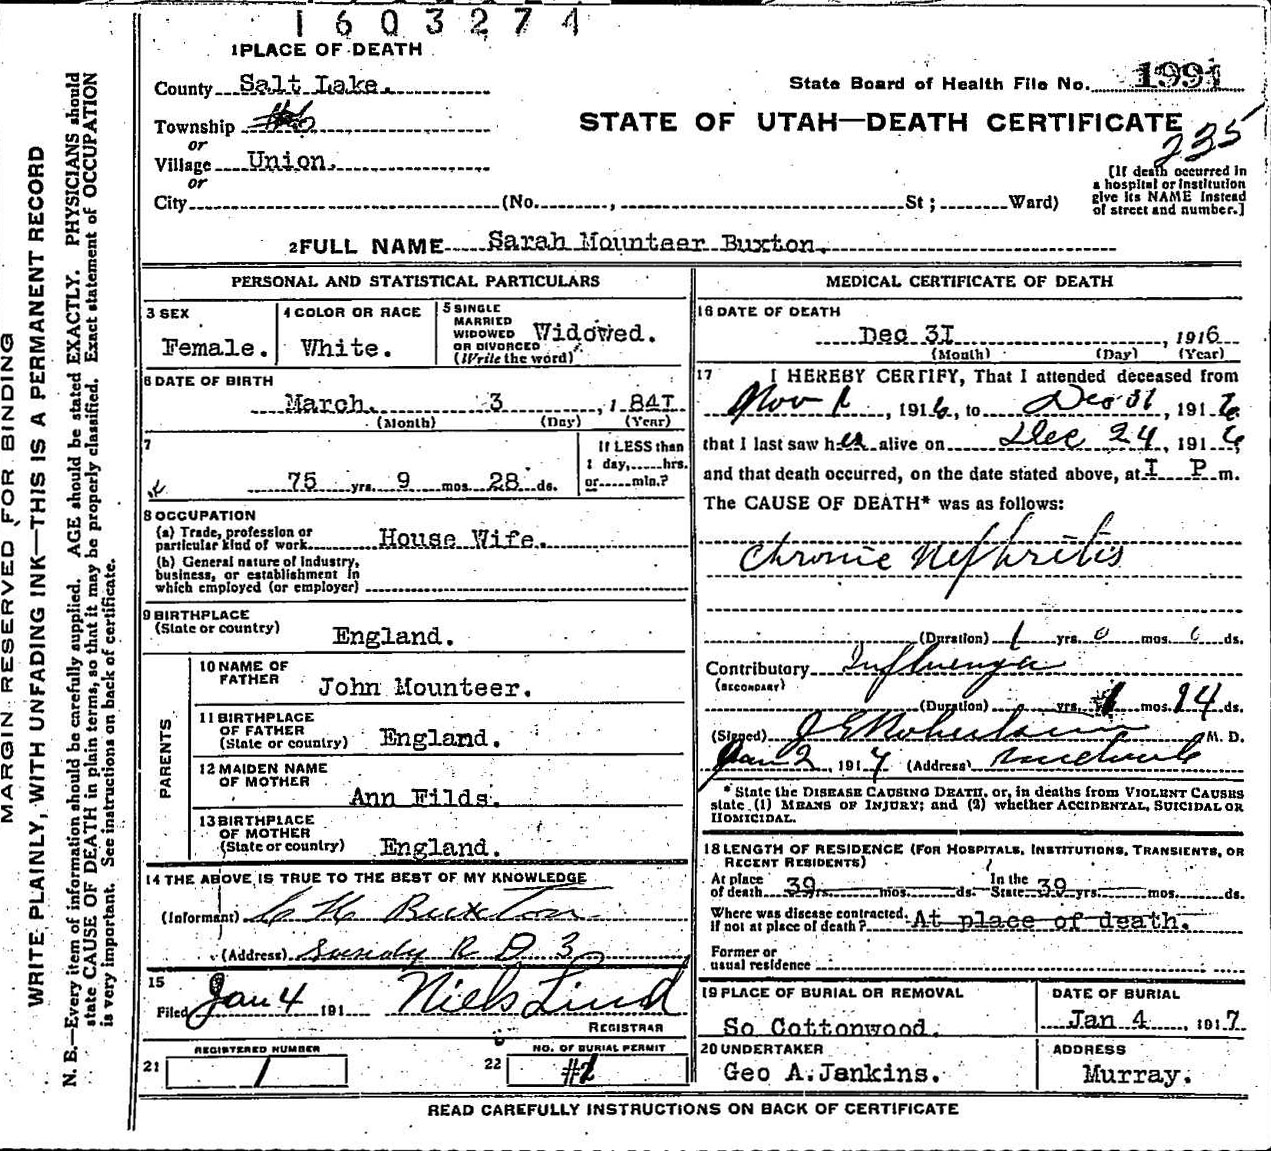 1603274
1 PLACE OF DEATH
County Salt Lake.
State Board of Health File No. 1991
Township
or
STATE OF UTAH—DEATH CERTIFICATE
235
Village Union.
or
City (No. , St; Ward)
[If death occurred in
a hospital or institution
give its NAME instead
of street and number.]
2 FULL NAME Sarah Mounteer Buxton.
PERSONAL AND STATISTICAL PARTICULARS
3 SEX
Female.
4 COLOR OR RACE
White.
5 SINGLE
MARRIED
WIDOWED
OR DIVORCED
(Write the word)
Widowed.
6 DATE OF BIRTH
March. 3 , 1 84I
(Month) (Day) (Year)
7
75 yrs. 9 mos. 28 ds.
If LESS than
1 day, hrs.
or min.?
8 OCCUPATION
(a) Trade, profession or
particular kind of work House Wife.
(b) General nature of Industry,
business, or establishment in
which employed (or employer)
9 BIRTHPLACE
(State or country)
England.
PARENTS
10 NAME OF
FATHER
John Mounteer.
11 BIRTHPLACE
OF FATHER
(State or country) England.
12 MAIDEN NAME
OF MOTHER
Ann Filds.
13 BIRTHPLACE
OF MOTHER
(State or country) England.
14 THE ABOVE IS TRUE TO THE BEST OF MY KNOWLEDGE
(Informant) C H Buxton
(Address) Sandy R D 3
15
Filed Jan 4 191 Niels Lind
REGISTRAR
21
REGISTERED NUMBER
1
22
NO. OF BURIAL PERMIT
MEDICAL CERTIFICATE OF DEATH
16 DATE OF DEATH
Dec 3I , 1916
(Month) (Day) (Year)
17 I HEREBY CERTIFY, That I attended deceased from
Nov 1 , 1916, to Dec 31 , 1916
that I last saw her alive on Dec 24 , 1916,
and that death occurred, on the date stated above, at I P m.
The CAUSE OF DEATH* was as follows:
Chronic Nephritis
(Duration) 1 yrs. 0 mos. 0 ds.
Contributory Influenza
(SECONDARY)
(Duration) yrs. mos. 14 ds.
(Signed) J E Robertson M. D.
Jan 2 , 1917 (Address) Midvale
* State the DISEASE CAUSING DEATH, or, in deaths from VIOLENT CAUSES
state (1) MEANS OF INJURY; and (2) whether ACCIDENTAL, SUICIDAL OR
HOMICIDAL.
18 LENGTH OF RESIDENCE (FOR HOSPITALS, INSTITUTIONS, TRANSIENTS, OR
RECENT RESIDENTS)
At place
of death 39 mos. ds. In the
State 39 yrs. mos. ds.
Where was disease contracted.
If not at place of death? At place of death.
Former or
usual residence
19 PLACE OF BURIAL OR REMOVAL
So Cottonwood.
DATE OF BURIAL
Jan 4 , 1917
20 UNDERTAKER
Geo A.Jenkins.
ADDRESS
Murray.
READ CAREFULLY INSTRUCTIONS ON BACK OF CERTIFICATE
MARGIN RESERVED FOR BINDING
WRITE PLAINLY, WITH UNFADING INK—THIS IS A PERMANENT RECORD
N. B.—Every item of information should be carefully supplied. AGE should be stated EXACTLY. PHYSICIANS should
state CAUSE OF DEATH in plain terms, so that it may be properly classified. Exact statement of OCCUPATION
is very important. See instructions on back of certificate.